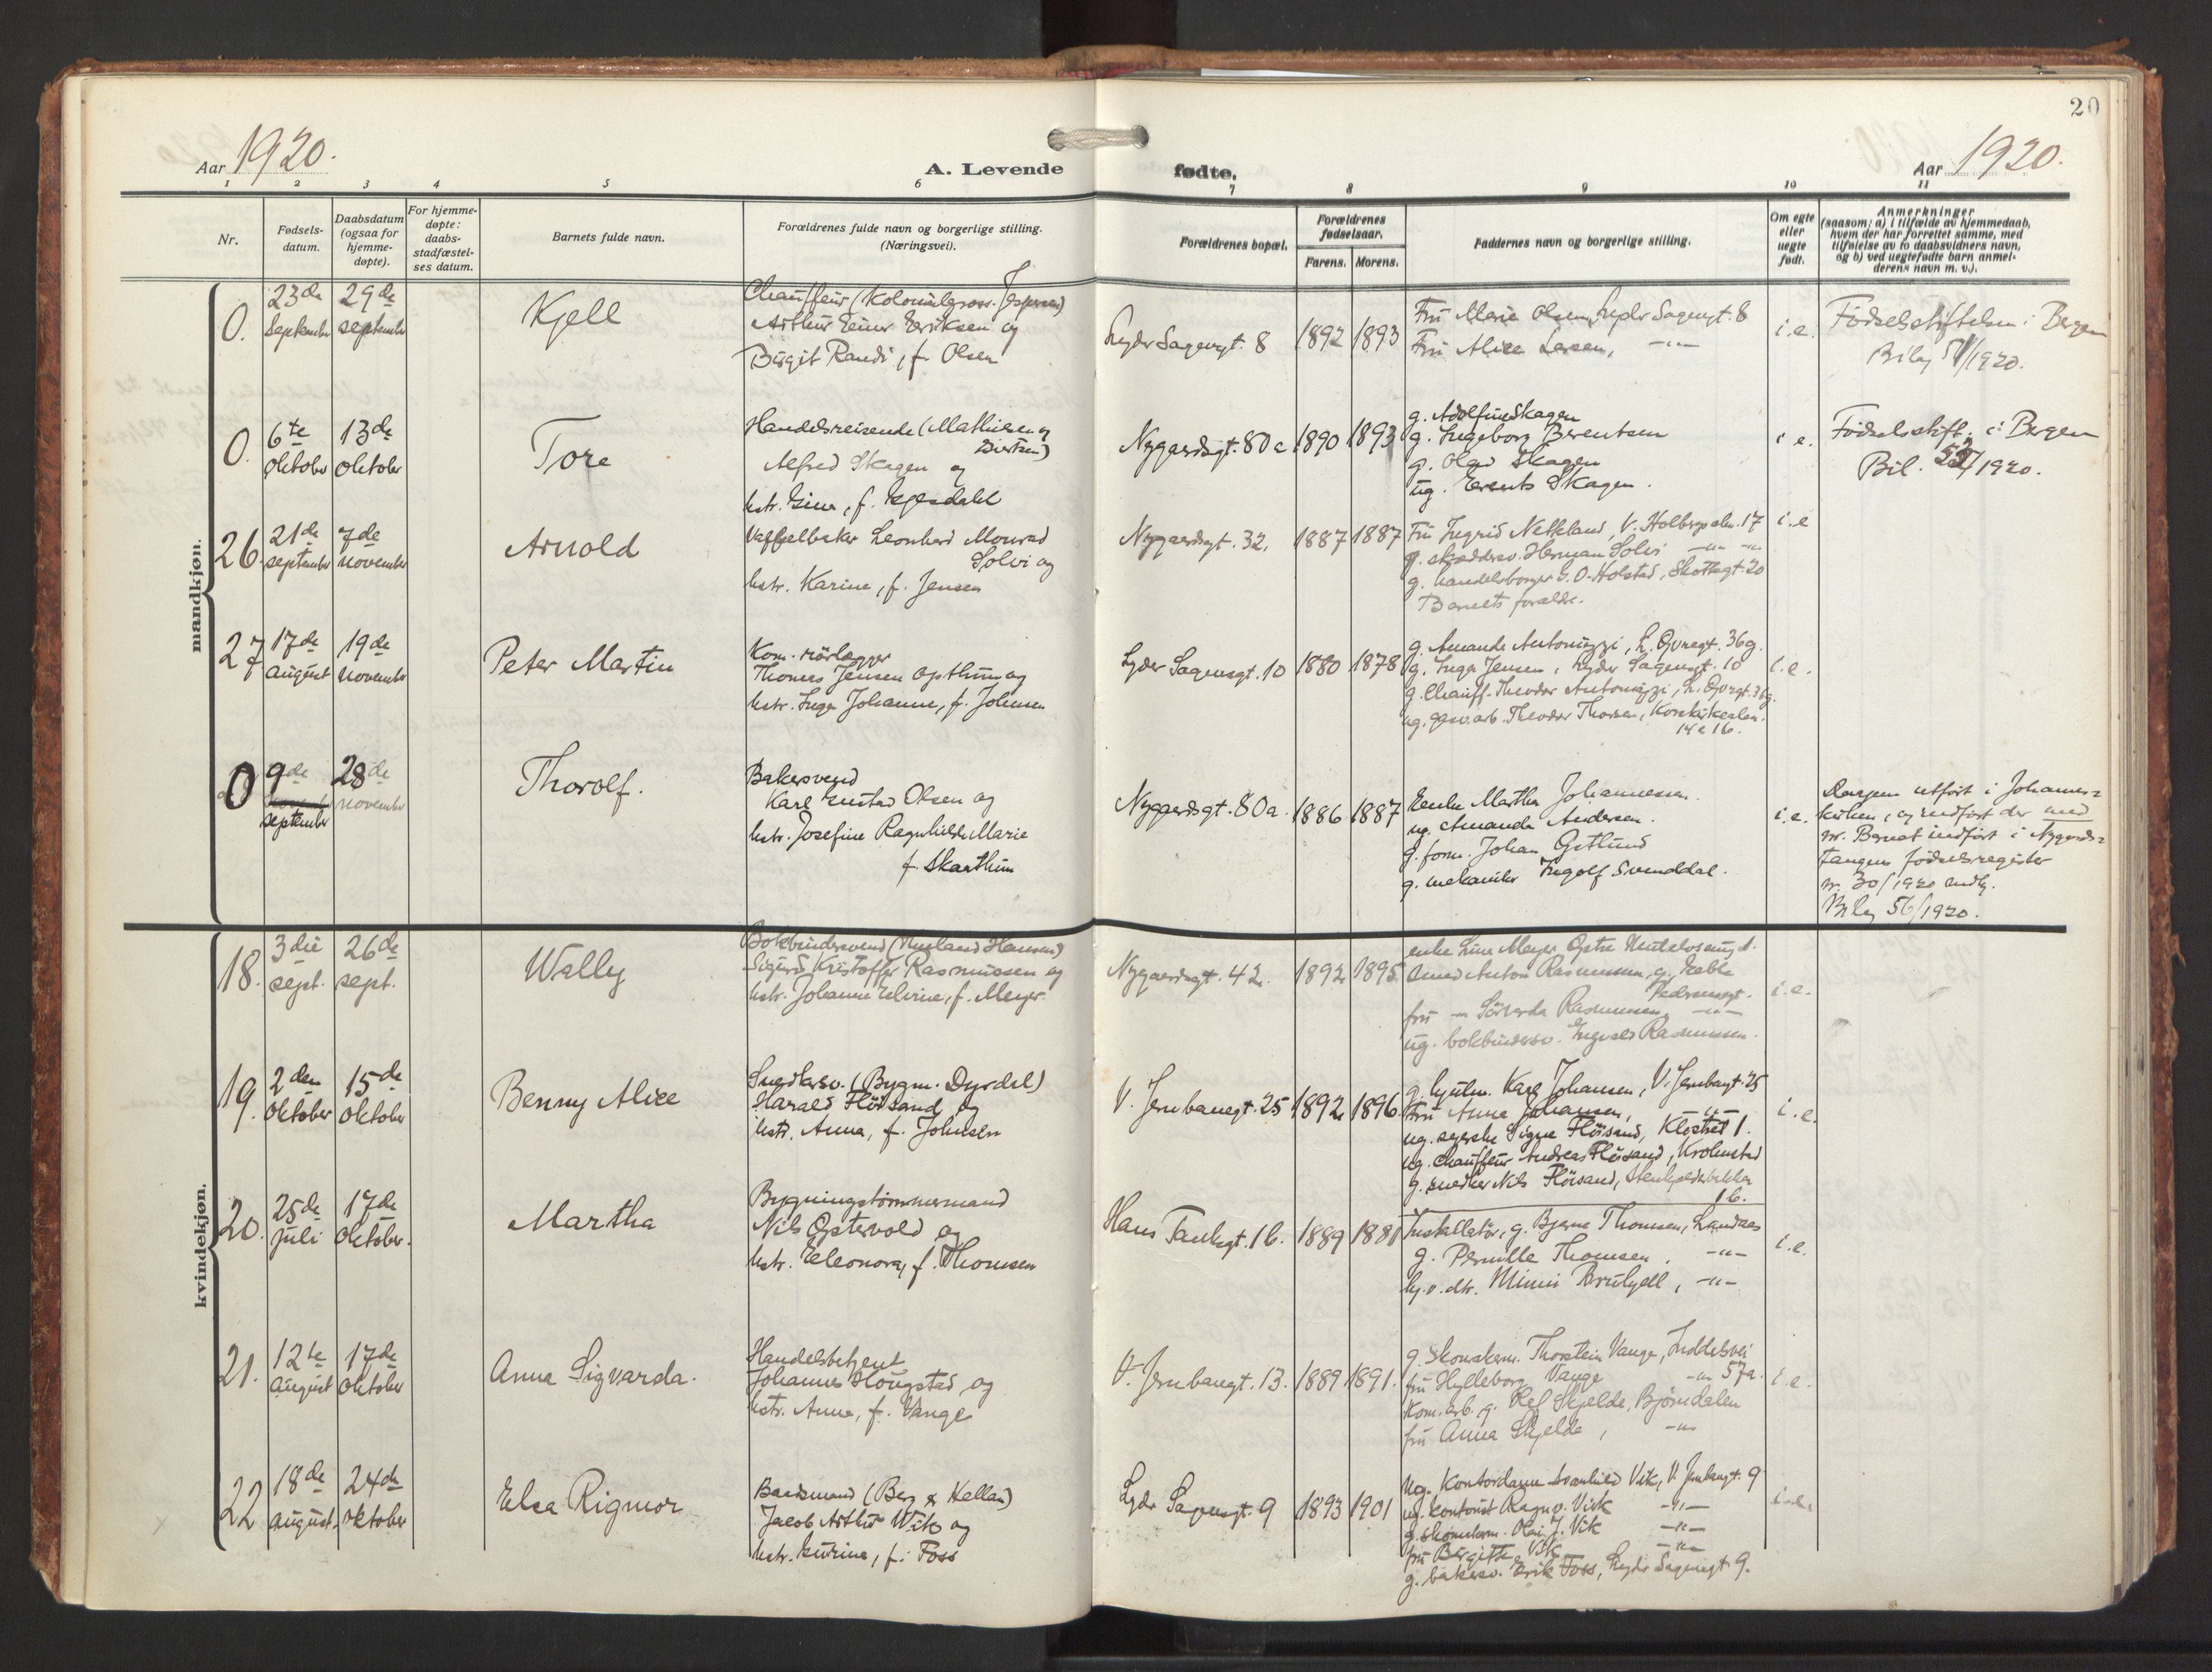 20
Aar 1920.
A. Levende fødte,
Aar 1920.
1 2 3 4 5 6 7 8 9 10 11
Nr.
Fødsels-
datum.
Daabsdatum
(ogsaa for
hjemme-
døpte).
For hjemme-
døpte:
daabs-
stadfæstel-
ses datum.
Barnets fulde navn.
Forældrenes fulde navn og borgerlige stilling.
(Næringsvei).
Forældrenes bopæl.
Forældrenes
fødselsaar.
Farens. Morens.
Faddernes navn og borgerlige stilling.
Om egte
eller
uegte
født.
Anmerkninger
(saasom: a) i tilfælde av hjemmedaab,
hvem der har forrettet samme, med
tilføielse av to daabsvidners navn,
og b) ved uegtefødte barn anmel-
derens navn m. v.).
mandkjøn.
0.
23de
September
29de
september
Kjell
Chauffeur (Kolonialgross. Jespersen)
Arthur Einer Eriksen og
Birgit Randi, f. Olsen
Lyder Sagensgt. 8
1892 1893
Fru Marie Olsen, Lyder Sagensgt. 8
Fru Alice Larsen, -"-
i.e.
Fødselsstiftelsen i Bergen
Bilag 51/1920.
0.
6te
Oktober
13de
Oktober
Tore
Handelsreisende (Mathiesen og
Alfred Skagen og
hstr. Eina, f. Kjosdahl
Nygaardsgt. 80a
1890 1893
g. Adolfine Skagen
g. Ingeborg Berentsen
g. Olav Skagen
ug. Berents Skagen.
i e.
Fødselsstift. i Bergen
Bil. 52/1920.
26.
21de
september
7de
november
Arnold
Vaffelbaker Leonhard Monrad
Solvi og
hstr. Karine, f. Jensen
Nygaardsgt. 32.
1887 1887
Fru Ingrid Netkland, V. Holbergsalm. 17
g. skræddersv. Herman Solvi -"- -"-
g. handelsborger G. O. Holstad, Skottegt. 20
Barnets forældre.
i.e
27
17de
August
19de
November
Peter Martin
Kom. rørlægger
Thomas Jensen Opthun og
hstr. Inga Johanne, f. Johnsen
Lyder Sagensgt. 10
1880 1878
g. Amanda Antonizzi, L. Øvregt. 36g.
g. Inga Jensen, Lyder Sagensgt. 10
g. Chauff. Theodor Antonizzi, L. Øvregt. 36g.
ug. gasv.arb. Theodor Thorsen, Korskirkealm.
14 a 16.
i.e.
0
9de
september
28de
november
Thorolf.
Bakersvend
Karl Gustav Olsen og
hstr. Josefine Ragnhilda Marie
f. Skarthun
Nygaardsgt. 80a.
1886 1887
Enke Martha Johannessen.
ug. Amanda Andersen.
g. form. Johan Østlund
g. mekaniker Ingolf Svenddal.
i.e.
Daapen utført i Johannes-
kirken, og indført der med
nr. Barnet indført i Nygaards-
tangens fødselsregister
nr. 30/1920 mdlg.
Bilag 56/1920.
kvindekjøn.
18.
3die
sept.
26de
sept.
Wally
Bokbindersvend (Nyland Hansen)
Sigurd Kristoffer Rasmussen og
hstr. Johanne Elvine, f. Meyer
Nygaardsgt. 42.
1892 1895
enke Line Meyer Østre
Anton Rasmussen, g.
Pedersensgt.
fru Rasmussen -"-
ug. bokbindersv. Ingvald Rasmussen.
i.e.
19.
2den
oktober
15de
Oktober
Benny Alice
Snedkersv. (Bygm. Dyrdal)
Harald Fløisand og
hstr. Anna, f. Johnsen
V. Jernbanegt. 25
1892 1896
g. Karl Johansen, V. Jernbanegt. 25
Fru Anna Johansen, -"-
ug. syerske Signe Fløisand, Klostret 1.
ug. chauffeur Andreas Fløisand, Krohnsted
g. snedker Nils Fløisand, Stenkjelderbakken
1b.
i.e.
20.
25de
juli
17de
Oktober.
Martha
Bygningstømmermand
Nils Østervold og
hstr. Eleonora, f. Thomsen
Hans Tanksgt. 1b.
1889 1881
Installatør, g. Bjarne Thomsen, Landaas
g. Pernille Thomsen, -"-
hj.v. dtr. Mimi Brukjell, -"-
i.e.
21.
12te
August
17de
Oktober
Anna Sigvarda.
Handelsbetjent
Johannes Hougstad og
hstr. Anna, f. Vange
V. Jernbanegt. 13.
1889 1891.
g. Skomakerm. Thorstein Vange, Lodddesvei
fru Hylleborg Vange -"- 57a.
Kom. arb. g. Olaf Skjelde, Bjørndalen
fru Anna Skjelde, -"-
i.e.
22
18de
August.
24de
Oktober
Elsa Rigmor
Baadsmand (Berg & Hellan)
Jacob Arthur Wik og
hstr. Laurine, f. Foss
Lyder Sagensgt. 9
1893 1901
ug. Kontordame Svanhild Vik, V. Jernbanegt. 9
ug. kontorist Ragnv. Vik -"-
g. skomakerm. Olai J. Vik -"-
fru Birgitte Vik -"-
g. bakersv. Erik Foss, Lyder Sagensgt. 9.
i.e.